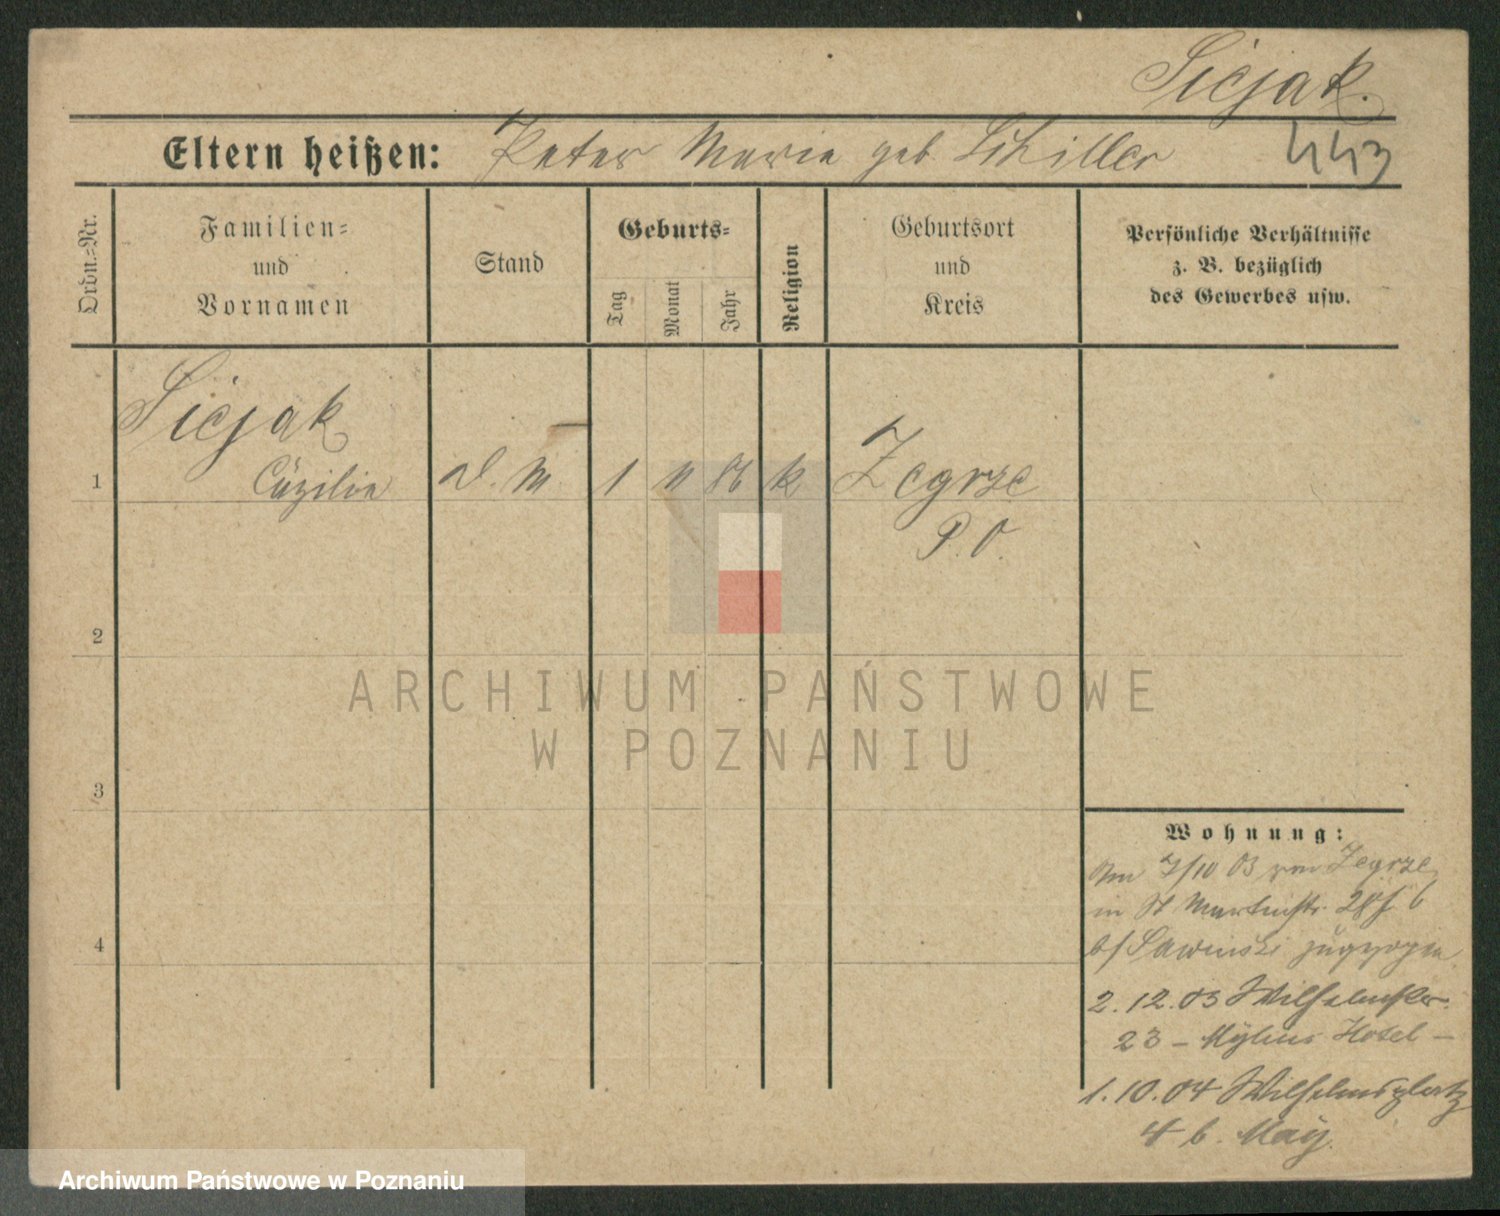 Sicjak.
Eltern heißen: Peter Marie geb. Schiller 443
Ordn.=Nr.
Familien=
und
Vornamen
Stand
Geburts=
Tag
Monat
Jahr
Religion
Geburtsort
und
Kreis
Persönliche Verhältnisse
z. B. bezüglich
des Gewerbes usw.
Sicjak
1 Cäzilie d. M. 1 11 86 k Zegrze
P. O.
2
3
4
Wohnung:
Am 7/10 03 von Zegrze
in St Martinstr. 28
b/ zugezogen
2. 12. 03 Wilhelmstr.
23 – Mylius Hotel –
1. 10. 04 Wilhelmsplatz
4 b. May.
ARCHIWUM PAŃSTWOWE
W POZNANIU
Archiwum Państwowe w Poznaniu